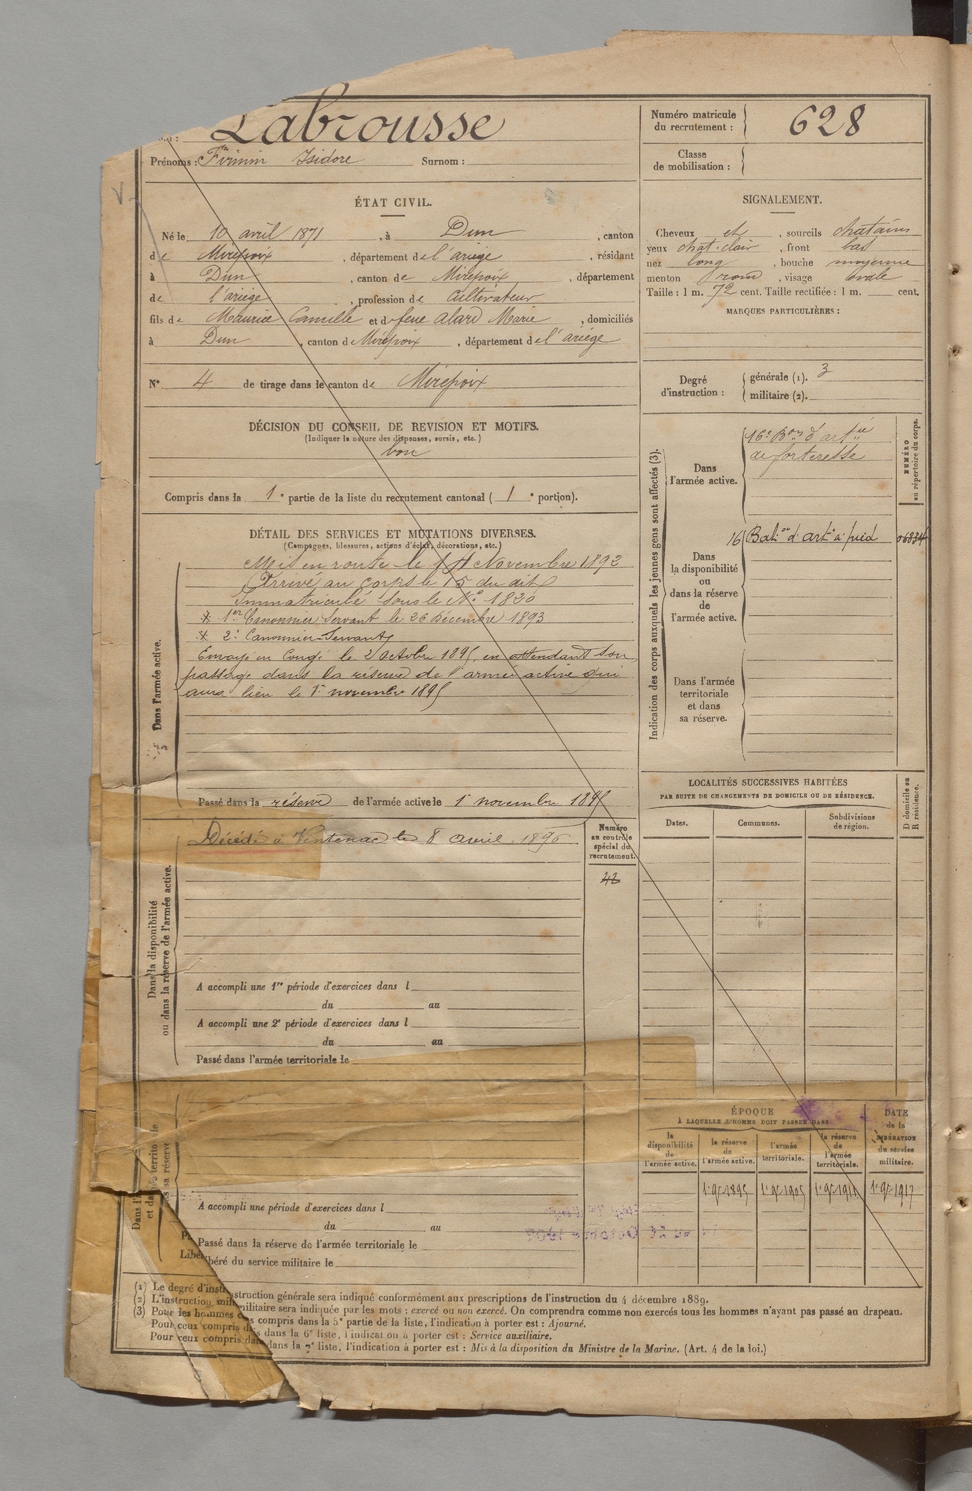 Labrousse
Prénoms : Firmin Isidore Surnom :
Numéro matricule du recrutement : 628
Classe de mobilisation :
ÉTAT CIVIL.
Né le 10 avril 1871, à Dun, canton
de Mirepoix, département de l'ariège, résidant
à Dun, canton de Mirepoix, département
de l'ariège, profession de Cultivateur
fils de Maurice Camille et de feue Alard Marie, domiciliés
à Dun, canton de Mirepoix, département de l'ariège
N° 4 de tirage dans le canton de Mirepoix
SIGNALEMENT.
Cheveux et, sourcils chatains
yeux chat. clair, front bas
nez long, bouche moyenne
menton rond, visage ovale
Taille : 1 m. 72 cent. Taille rectifiée : 1 m. cent.
MARQUES PARTICULIÈRES :
Degré d'instruction :
générale (1). 3
militaire (2).
DÉCISION DU CONSEIL DE REVISION ET MOTIFS.
(Indiquer la nature des dispenses, sursis, etc.)
bon
Compris dans la 1e partie de la liste du recrutement cantonal ( 1e portion).
DÉTAIL DES SERVICES ET MUTATIONS DIVERSES.
(Campagnes, blessures, actions d'éclat, décorations, etc.)
Dans l'armée active.
Mis en route le 14 Novembre 1892
Arrivé au corps le 15 du dit
Immatriculé sous le N° 1820
* 1er Canonnier Servant le 26 Décembre 1893
* 2e Canonnier-Servant
Envoyé en Congé le 2 octobre 1895 en attendant son
passage dans la réserve de l'armée active qui
aura lieu le 1er novembre 1895
Passé dans la réserve de l'armée active le 1er novembre 1895
Indication des corps auxquels les jeunes gens sont affectés (3).
NUMÉRO au répertoire du corps.
Dans l'armée active.
16e Bon d'artie
de forteresse
Dans la disponibilité ou dans la réserve de l'armée active.
16 Bataon d'arte à pied 06834
Dans l'armée territoriale et dans sa réserve.
LOCALITÉS SUCCESSIVES HABITÉES
PAR SUITE DE CHANGEMENTS DE DOMICILE OU DE RÉSIDENCE.
Dates. Communes. Subdivisions de région.
D domicile ou R résidence.
Dans la disponibilité ou dans la réserve de l'armée active.
Décédé à Ventenac le 8 avril 1896
Numéro au contrôle spécial du recrutement.
42
A accompli une 1re période d'exercices dans l
du au
A accompli une 2e période d'exercices dans l
du au
Passé dans l'armée territoriale le
ÉPOQUE
À LAQUELLE L'HOMME DOIT PASSER DANS
la disponibilité de l'armée active.
la réserve de l'armée active.
l'armée territoriale.
la réserve de l'armée territoriale.
DATE de la LIBÉRATION du service militaire.
1er 9bre 1895 1er 9bre 1905 1er 9bre 1911 1er 9bre 1917
A accompli une période d'exercices dans l
du au
Passé dans la réserve de l'armée territoriale le
Libéré du service militaire le
(1) Le degré d'instruction générale sera indiqué conformément aux prescriptions de l'instruction du 4 décembre 1889.
(2) L'instruction militaire sera indiquée par les mots : exercé ou non exercé. On comprendra comme non exercés tous les hommes n'ayant pas passé au drapeau.
(3) Pour les hommes compris dans la 5e partie de la liste, l'indication à porter est : Ajourné.
Pour ceux compris dans la 6e liste, l'indication à porter est : Service auxiliaire.
Pour ceux compris dans la 7e liste, l'indication à porter est : Mis à la disposition du Ministre de la Marine. (Art. 4 de la loi.)